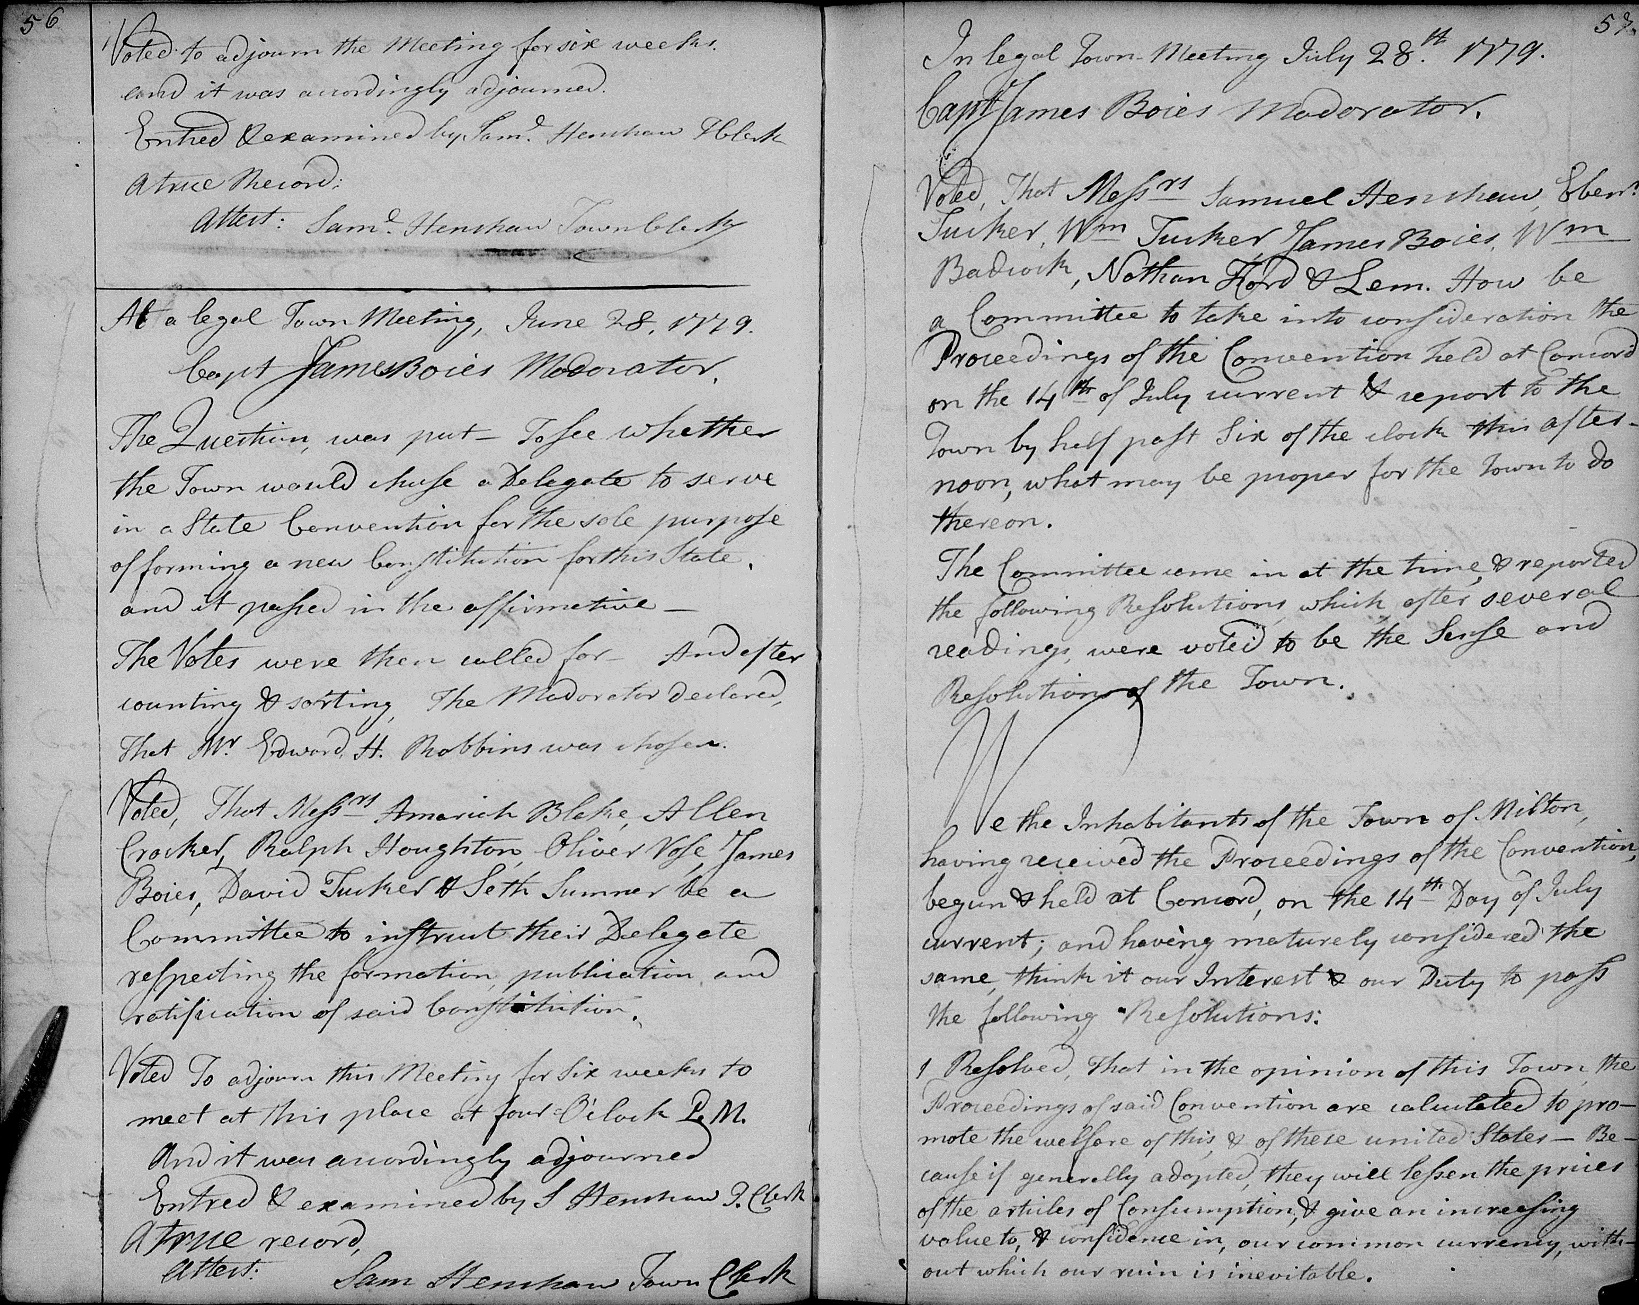 56
Voted to adjourn the Meeting for six weeks.
and it was accordingly adjourned.
Entred & examined by Sam.l Henshaw T Clerk
A true Record:
Attest: Sam.l Henshaw Town Clerk
At a legal Town Meeting, June 28, 1779.
Capt James Boies Moderator.
The Question, was put – To see whether
the Town would chuse a Delegate to serve
in a State Convention for the sole purpose
of forming a new Constitution for this State.
and it passed in the affirmative –
The Votes were then called for – And after
counting & sorting, The Moderator declared,
That Mr. Edward H. Robbins was chosen.
Voted, That Messrs Amariah Blake, Allen
Crocker, Ralph Houghton, Oliver Vose, James
Boies, David Tucker & Seth Sumner be a
Committee to instruct their Delegate
respecting the formation, publication and
ratification of said Constitution.
Voted To adjourn this Meeting for Six weeks to
meet at this place at four O'clock P.M.
And it was accordingly adjourned
Entred & examined by S Henshaw T. Clerk
A true record,
Attest:
Sam Henshaw Town Clerk
57.
In legal Town-Meeting July 28.th 1779.
Capt James Boies Modorator.
Voted, That Messrs Samuel Henshaw, Ebenr.
Tucker, Wm Tucker James Boies, Wm
Badcock, Nathan Ford & Lem. How be
a Committee to take into consideration the
Proceedings of the Convention held at Concord
on the 14th of July current & report to the
Town by half past Six of the clock this after-
noon, what may be proper for the Town to do
thereon.
The Committee came in at the time, & reported
the following Resolutions, which, after several
readings, were voted to be the Sense and
Resolutions of the Town.
We the Inhabitants of the Town of Milton,
having received the Proceedings of the Convention,
begun & held at Concord, on the 14th Day of July
current; and having maturely considered the
same, think it our Interest & our Duty to pass
the following Resolutions:
1 Resolved, That in the opinion of this Town, the
Proceedings of said Convention are calculated to pro–
mote the welfare of this, & of these united States – Be–
cause if generally adopted, they will lessen the prices
of the articles of Consumption, & give an increasing
value to, & confidence in, our common currency, with–
out which our ruin is inevitable.